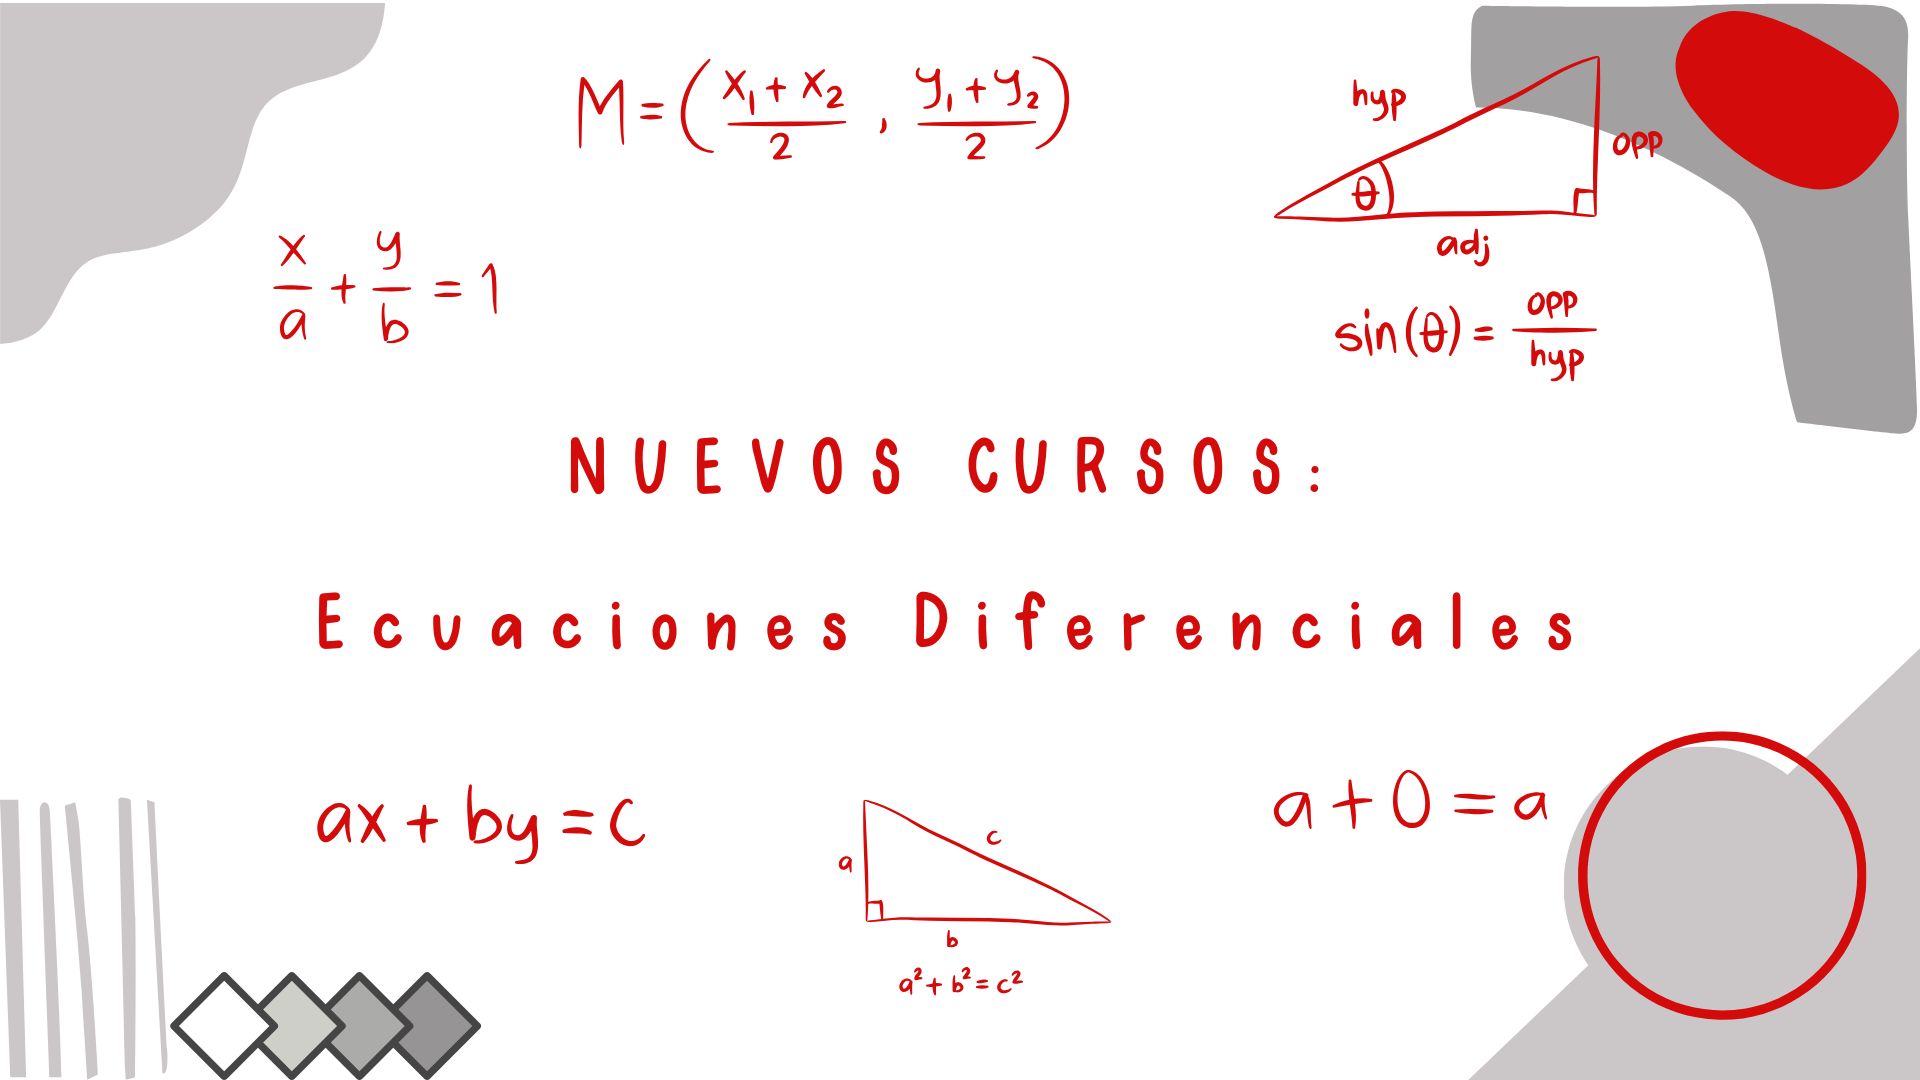 M = ( x₁ + x₂ / 2 , y₁ + y₂ / 2 )
hyp
opp
θ
adj
x/a + y/b = 1
sin(θ) = opp/hyp
NUEVOS CURSOS:
Ecuaciones Diferenciales
ax + by = c
a + 0 = a
c
a
b
a² + b² = c²